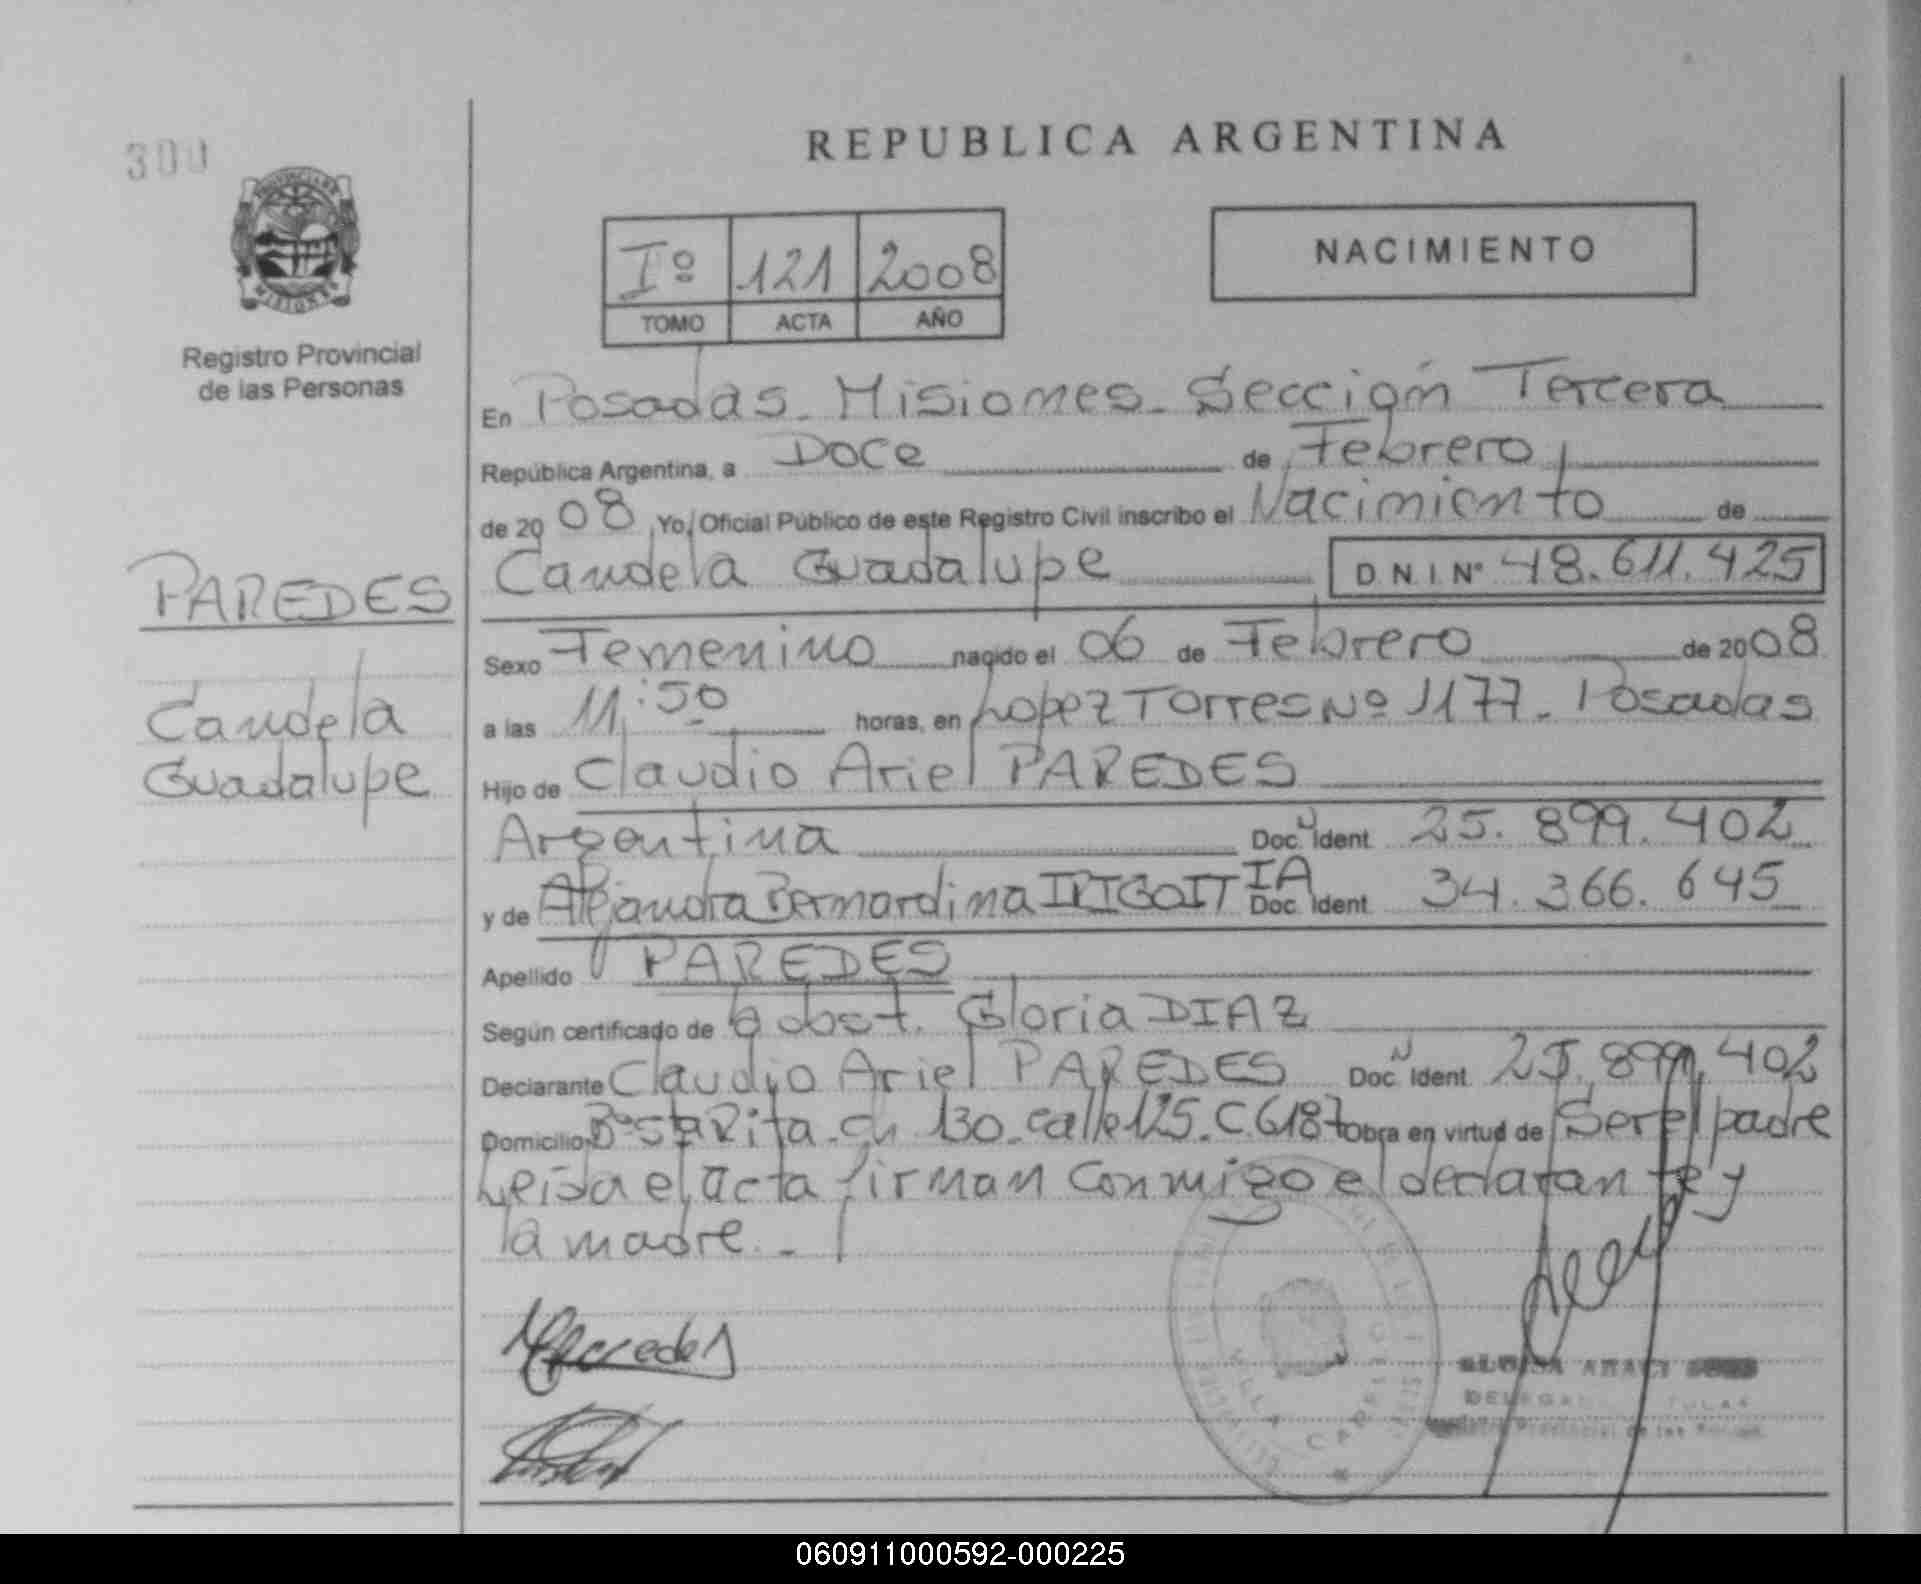 300
REPUBLICA ARGENTINA
Iº 121 2008
TOMO ACTA AÑO
NACIMIENTO
PROVINCIA DE
MISIONES
Registro Provincial
de las Personas
En Posadas. Misiones. Sección Tercera
República Argentina, a Doce de Febrero
de 2008 Yo, Oficial Público de este Registro Civil inscribo el Nacimiento de
Candela Guadalupe D N I Nº 48.611.425
PAREDES
Candela
Guadalupe
Sexo Femenino nacido el 06 de Febrero de 2008
a las 11:50 horas, en Lopez Torres Nº 1177. Posadas
Hijo de Claudio Ariel PAREDES
Argentina Doc. Ident. 25.899.402
y de Alejandra Bernardina IRIGOITIA Doc. Ident. 34.366.645
Apellido PAREDES
Según certificado de obst. Gloria DIAZ
Declarante Claudio Ariel PAREDES Doc. Ident. 25.899.402
Domicilio Bº Sta Rita. ch 130. calle 125. C. 6187 Obra en virtud de Ser el padre
Leída el acta firman conmigo el declarante y
la madre. -
VILLA CABELLO
060911000592-000225